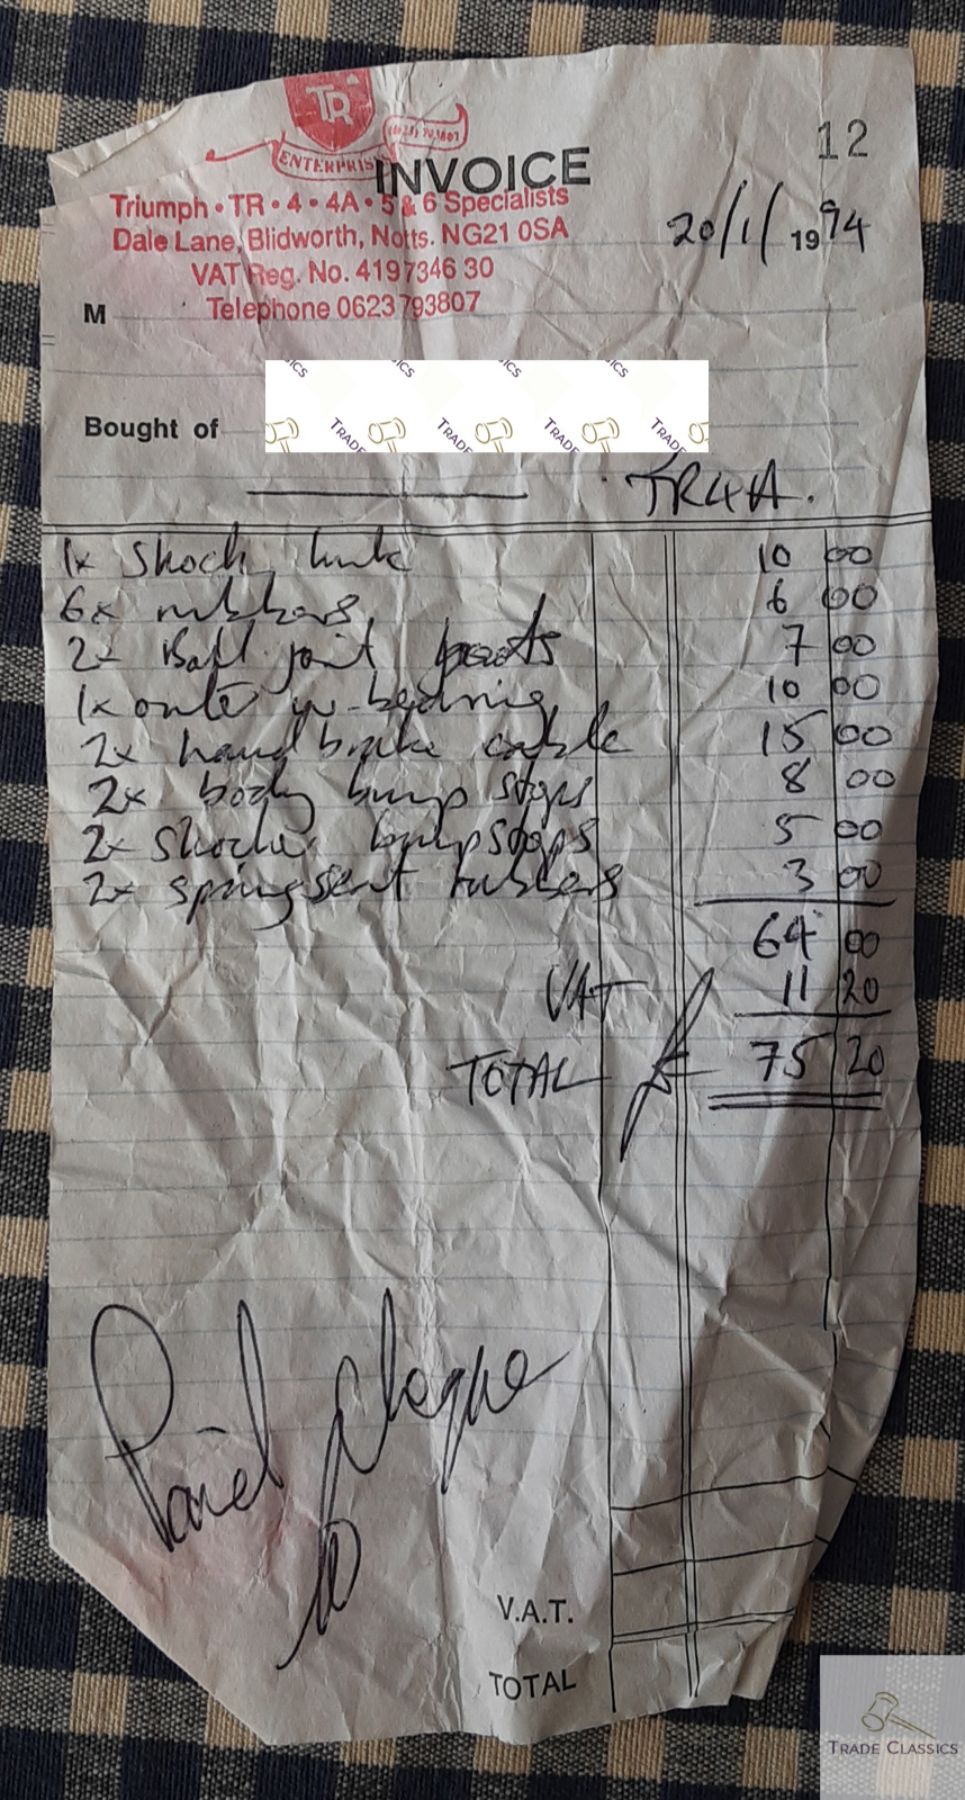 TR
ENTERPRIS
INVOICE
12
Triumph • TR • 4 • 4A • 5 & 6 Specialists
Dale Lane, Blidworth, Notts. NG21 0SA
20/1/ 1994
VAT Reg. No. 4197346 30
M
Telephone 0623 793807
Bought of
TR4A.
1x Shock link 10 00
6x rubbers 6 00
2x Ball joint 7 00
1x outer w-bearing 10 00
2x handbrake cable 15 00
2x body bump stops 8 00
2x shocker bumpstops 5 00
2x spring seat rubbers 3 00
64 00
VAT 11 20
TOTAL £ 75 20
Paid
V.A.T.
TOTAL
TRADE CLASSICS